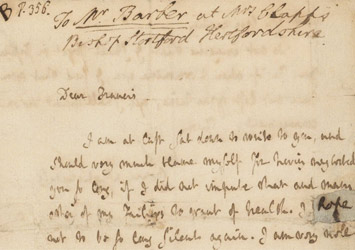 B P. 356.
To Mr. Barber at Mrs Clapp's
Bishop Stortford Hertfordshire.
Dear Francis
I am at last sat down to write to you, and
should very much blame myself for having neglected
you so long, if I did not impute that and many
other of my failings to want of health. I hope
not to be so long silent again. I am very well